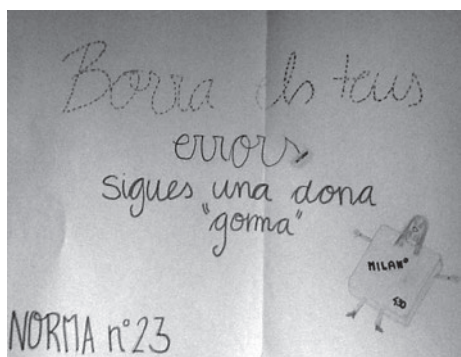 Borra els teus
errors
sigues una dona
"goma"
MILAN®
NORMA nº23